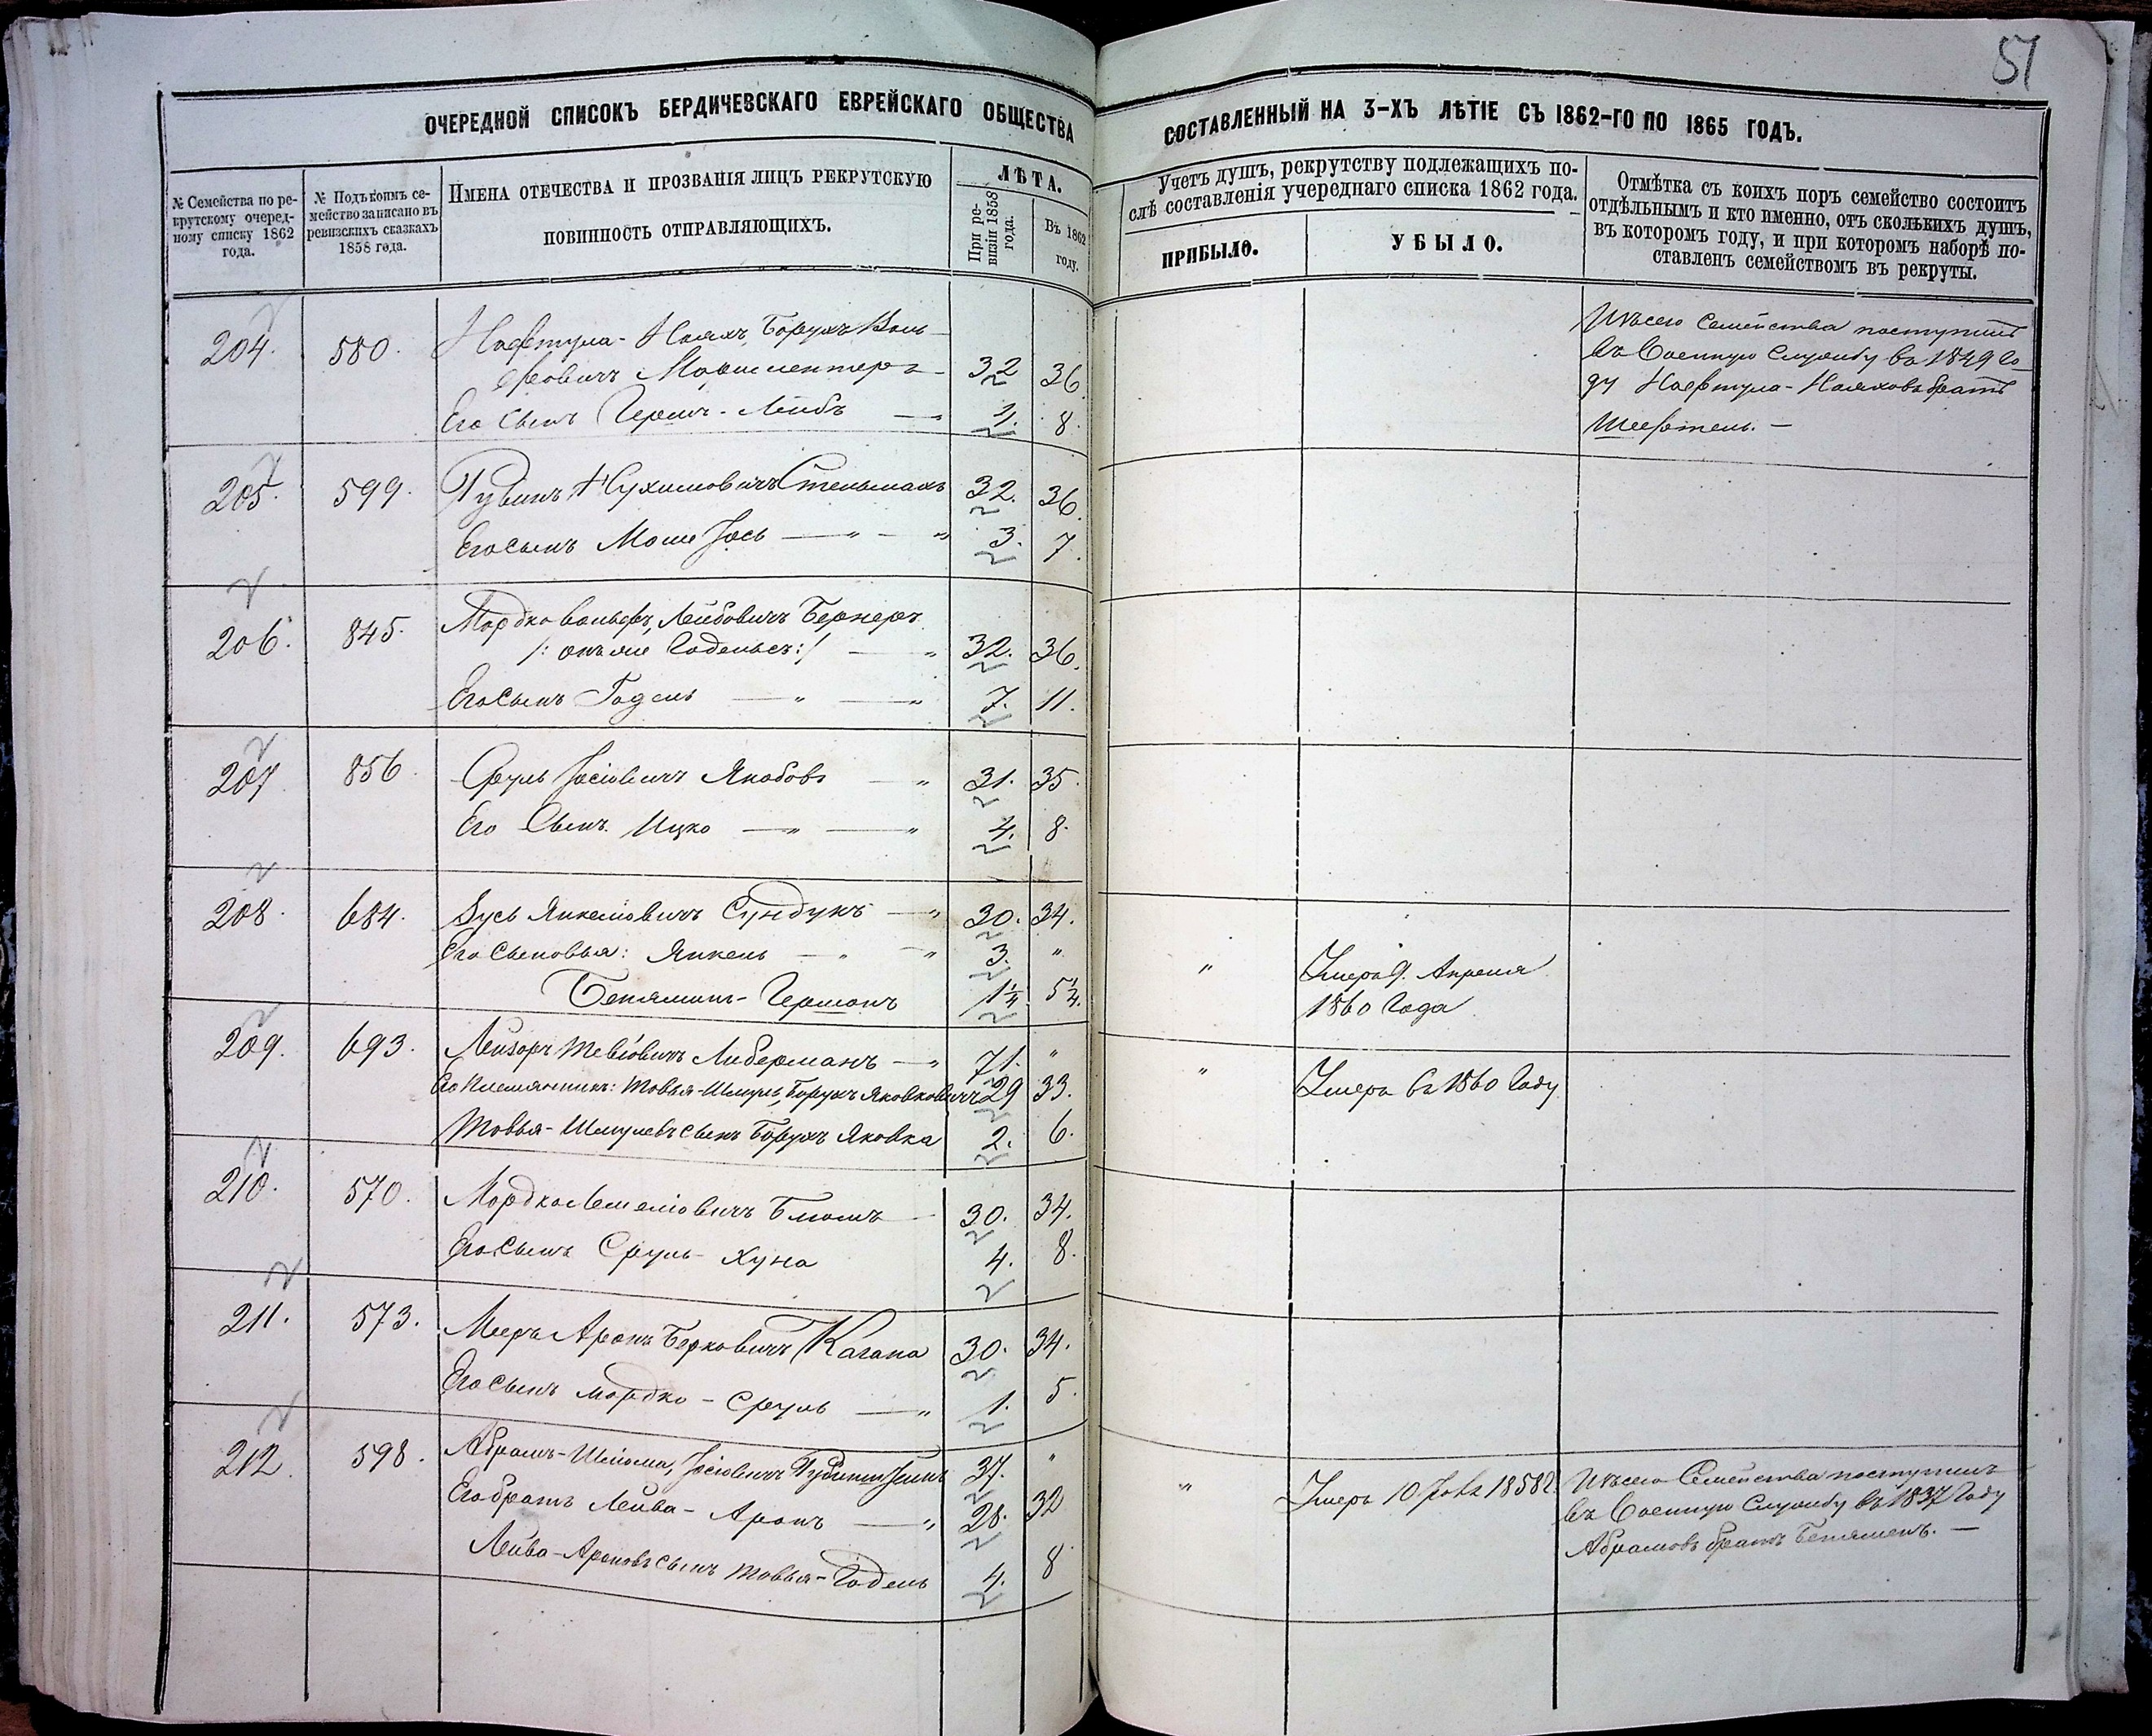 51
ОЧЕРЕДНОЙ СПИСОКЪ БЕРДИЧЕВСКАГО ЕВРЕЙСКАГО ОБЩЕСТВА
СОСТАВЛЕННЫЙ НА 3-ХЪ ЛѢТІЕ СЪ 1862-ГО ПО 1865 ГОДЪ.
№ Семейства по ре-
крутскому очеред-
ному списку 1862
года.
№ Подъ коимъ се-
мейство записано въ
ревизскихъ сказкахъ
1858 года.
ИМЕНА ОТЕЧЕСТВА И ПРОЗВАНІЯ ЛИЦЪ РЕКРУТСКУЮ
ПОВИННОСТЬ ОТПРАВЛЯЮЩИХЪ.
ЛѢТА.
При ре-
визіи 1858
года.
Въ 1862
году.
Учетъ душъ, рекрутству подлежащихъ по-
слѣ составленія учереднаго списка 1862 года.
ПРИБЫЛО.
УБЫЛО.
Отмѣтка съ коихъ поръ семейство состоитъ
отдѣльнымъ и кто именно, отъ сколькихъ душъ,
въ котором году, и при котором наборѣ по-
ставленъ семействомъ въ рекруты.
204. 580. Нафтула-Наяхъ, Борухъ Воль-
фовичъ 32 36
Его Сынъ Герш-Лейбъ — 1. 8.
Изъ сего Семейства поступилъ
въ Военную Службу въ 1849 го-
ду Нафтула-Наяховъ братъ
Шефтель. —
205. 599. Рувинъ Нухимовичъ Стельмахъ 32. 36.
Его сынъ Моше Іось — " — " 3. 7.
206. 845. Мордко Вольфъ, Лейбовичъ Бернеръ
/: онъ же Годельсъ :/ — " 32. 36.
Его Сынъ Годель — " — " 7. 11.
207 856. Сруль Іосіовичъ Якобовъ — " 31. 35.
Его Сынъ Ицко — " — " 4. 8.
208. 684. Зусь Янкеліовичъ Сундукъ — " 30. 34.
Его Сыновья: Янкель — " — " 3. "
" Умеръ 9. Апреля
1860 Года
Бенямин-Гершонъ 1¼ 5¼.
209. 693. Лейзоръ Тевіовичъ Либерманъ — " 71. "
" Умеръ въ 1860 Году
Его Племянникъ: Товья-Шмуль, Борухъ Яковковичъ 29 33.
Товья-Шмулевъ сынъ Борухъ Яковка 2. 6.
210. 570. Мордко Шмеліовичъ 30. 34.
Его Сынъ Сруль-Хуна 4. 8.
211. 573. Мееръ Аронъ Берковичъ Кагана 30. 34.
Его Сынъ Мордко-Сруль — " 1. 5.
212. 598. Абрамъ-Шлиома, Іосіовичъ 37. "
" Умеръ 10 1858 г.
Изъ сего Семейства поступилъ
въ Военную Службу въ 1837 Году
Абрамовъ братъ Бенямень. —
Его братъ Лейва-Аронъ — " 28. 32
Лейва-Ароновъ Сынъ Товья-Годель 4. 8